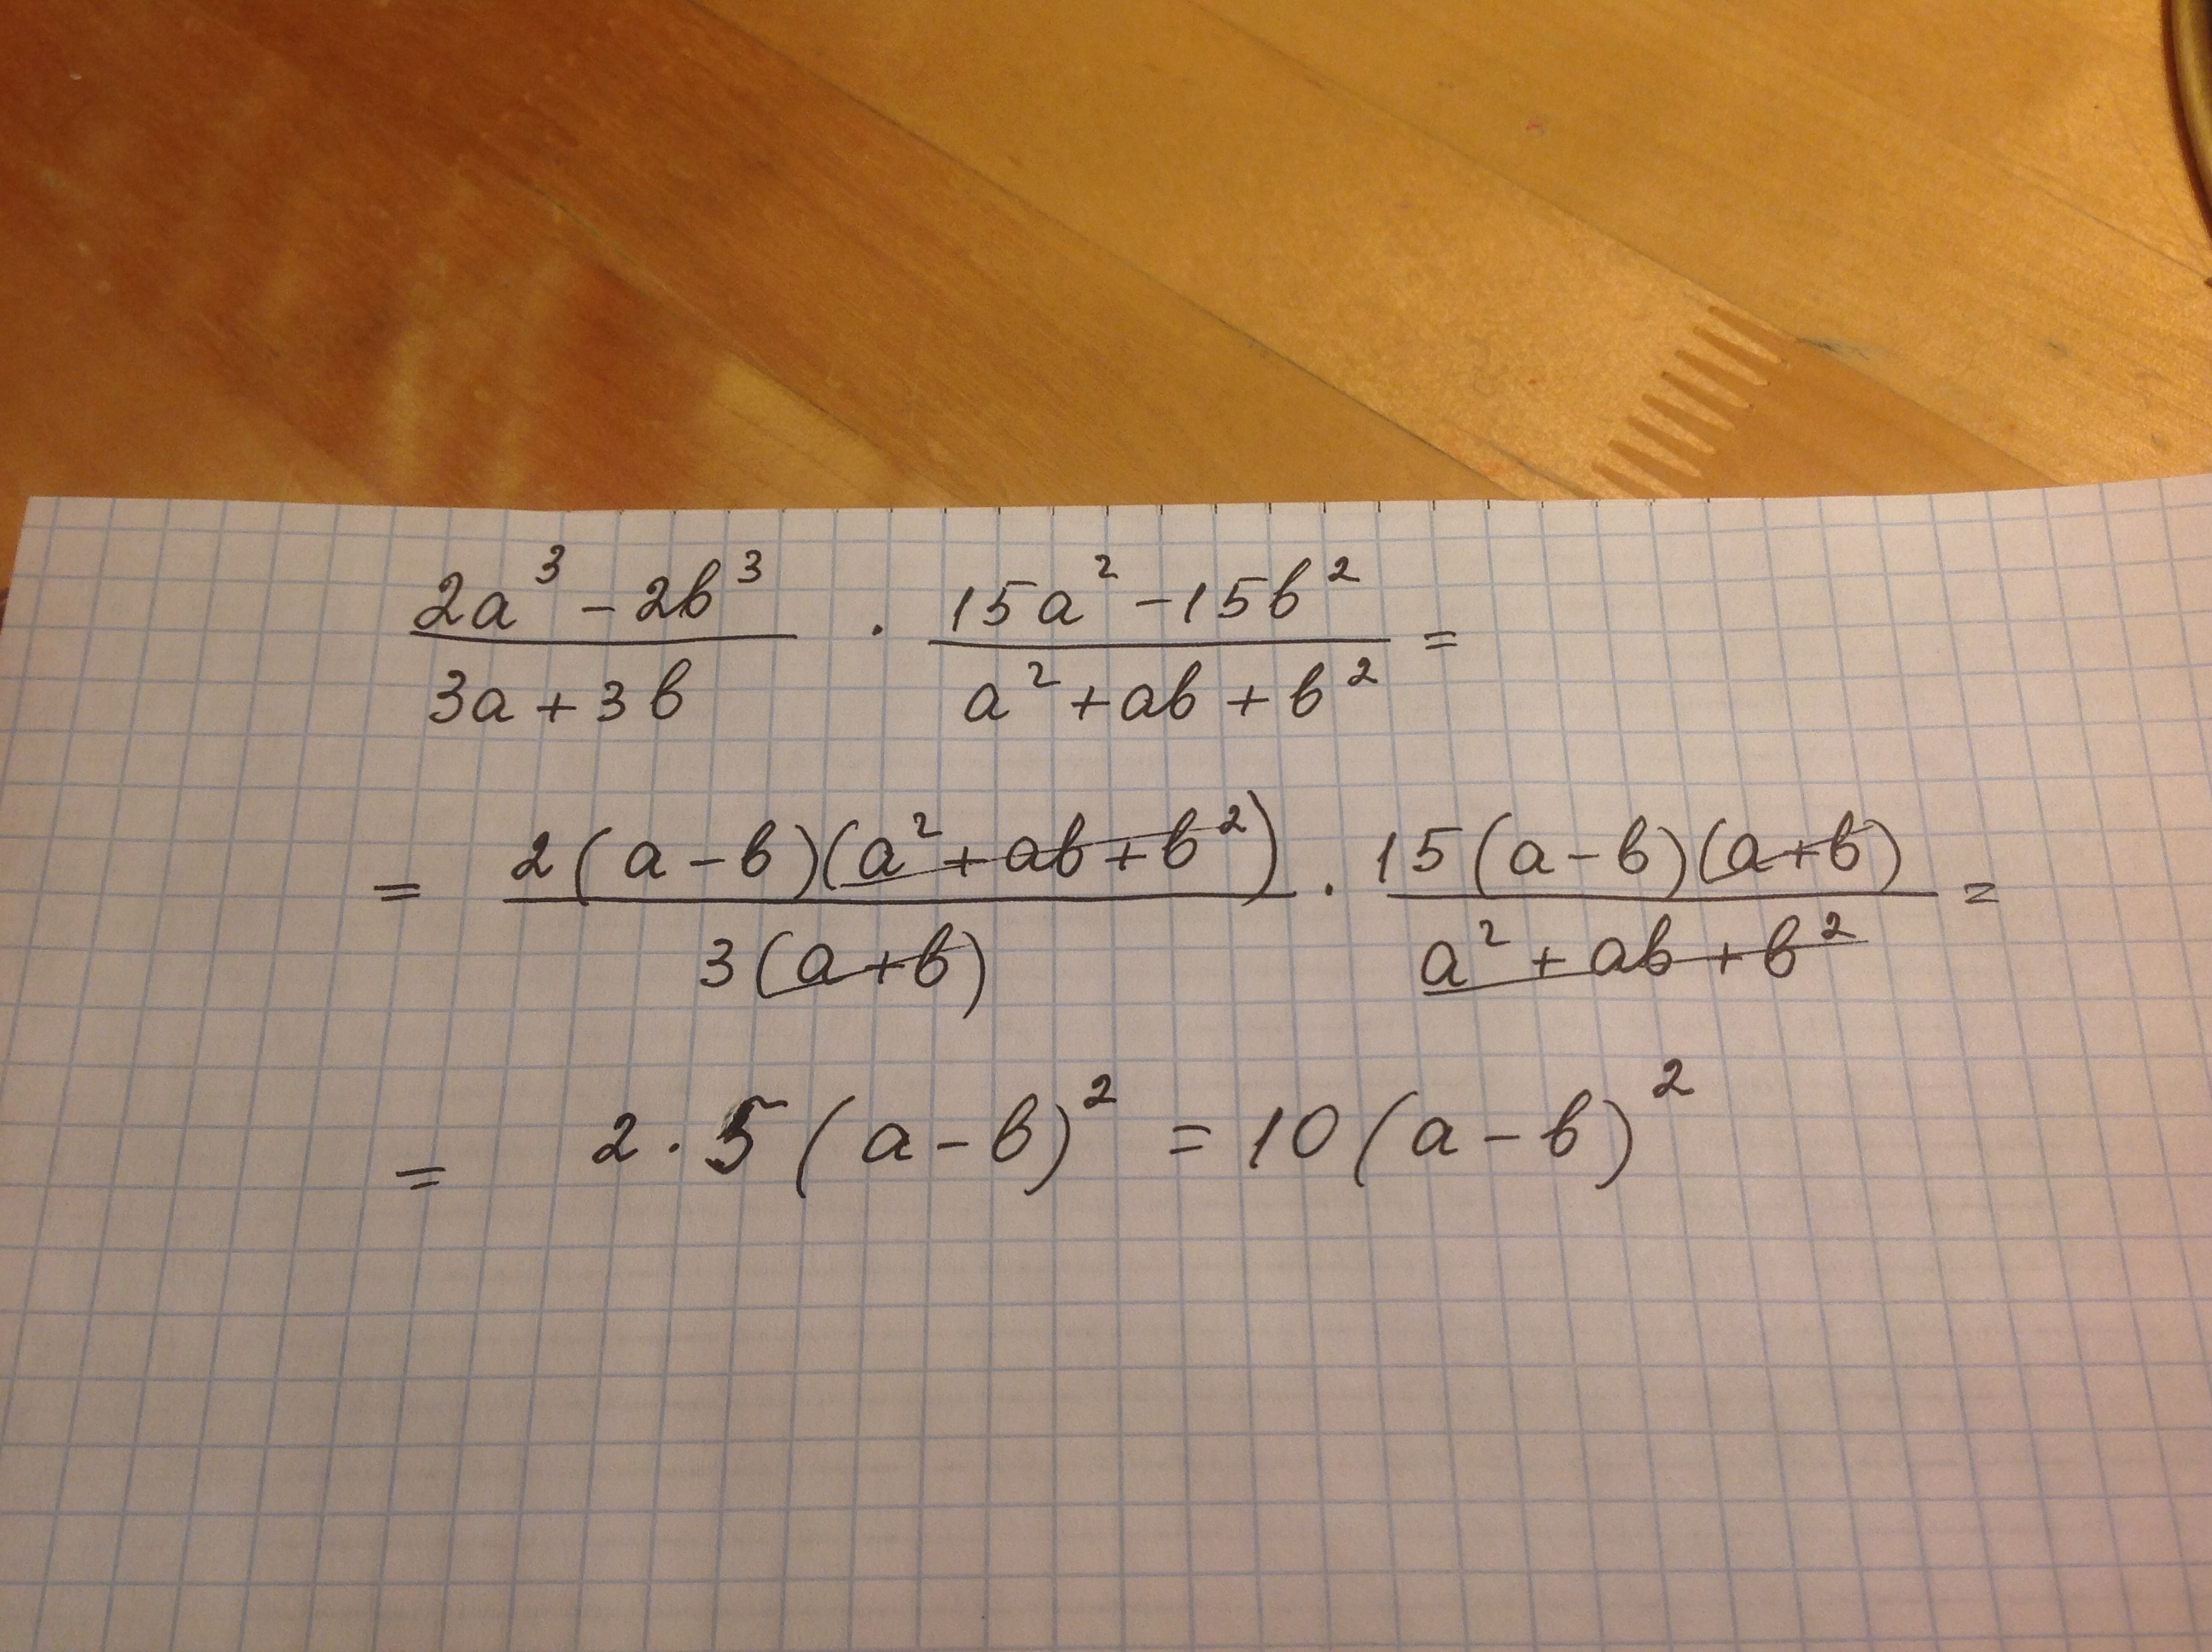 2a³ - 2b³ / 3a + 3b · 15a² - 15b² / a² + ab + b² =
= 2(a - b)(a² + ab + b²) / 3(a + b) · 15(a - b)(a + b) / a² + ab + b² =
= 2 · 5(a - b)² = 10(a - b)²